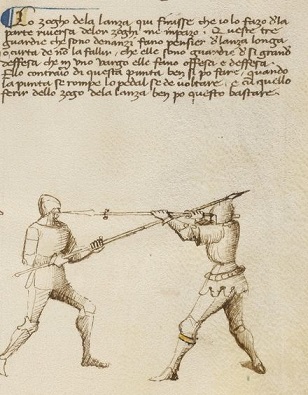 Lo zogho dela lanza, qui finisse, che io lo fazo d'la
parte riversa delor zoghi me reparo. Queste tre
guardie che sono denanzi fano pensier d'lanza longa
o curta de non la fallir, che elle sono guardie d'si grand
deffesa, che in uno vargo elle fano offesa e deffesa.
Ello contrario di questa punta ben si po fare, quando
la punta se rompe lo pedal se de voltare, e cum quello
ferir dello zogo dela lanza ben po questo bastare.